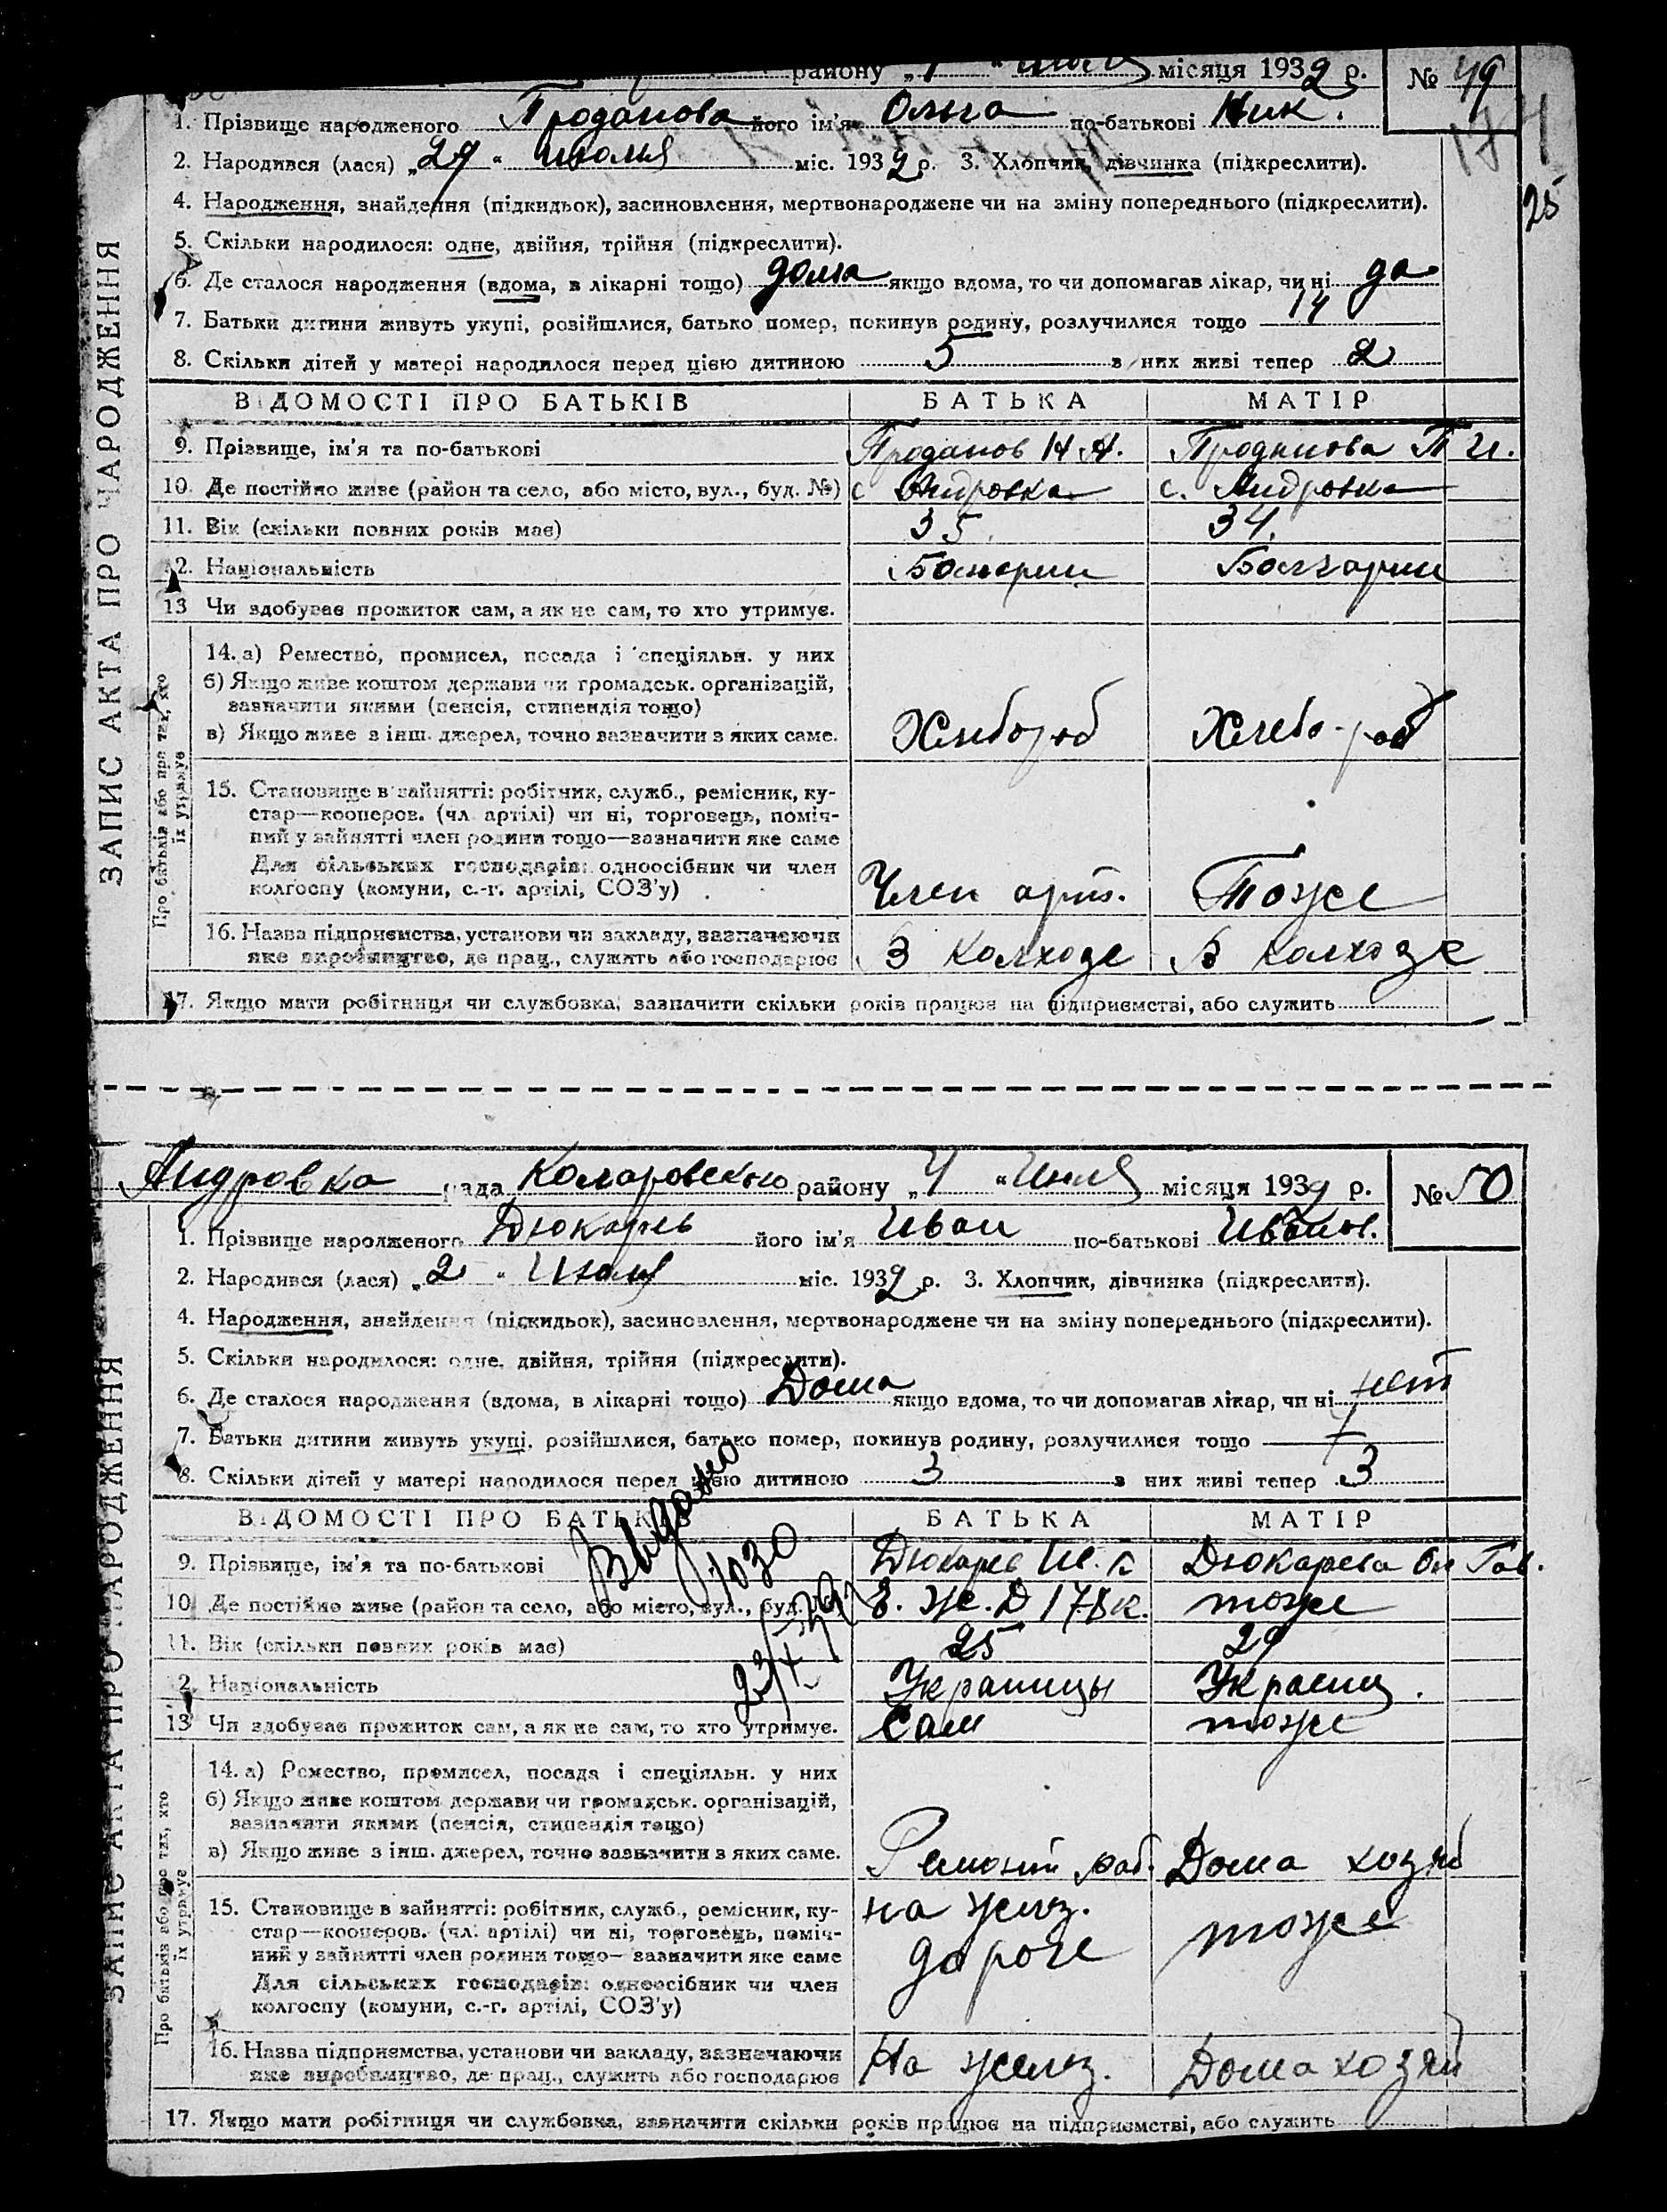 району „1 “ місяця 1932 р. № 49
1. Прізвище народженого Проданова його ім'я Ольга по-батькові Ник.
174
2. Народився (лася) „29“ июля міс. 1932 р. 3. Хлопчик, дівчинка (підкреслити).
25
4. Народження, знайдення (підкидьок), засиновлення, мертвонароджене чи на зміну попереднього (підкреслити).
5. Скільки народилося: одне, двійня, трійня (підкреслити).
6. Де сталося народження (вдома, в лікарні тощо) дома якщо вдома, то чи допомагав лікар, чи ні да
7. Батьки дитини живуть укупі, розійшлися, батько помер, покинув родину, розлучилися тощо 14
8. Скільки дітей у матері народилося перед цією дитиною 5 з них живі тепер 2
ВІДОМОСТІ ПРО БАТЬКІВ БАТЬКА МАТІР
9. Прізвище, ім'я та по-батькові Проданов Н. А. Проданова П И.
10. Де постійно живе (район та село, або місто, вул., буд. №) с Андровка с. Андровка
11. Вік (скільки повних років має) 35. 34.
12. Національність Болгарин Болгарин
13 Чи здобуває прожиток сам, а як не сам, то хто утримує.
ЗАПИС АКТА ПРО НАРОДЖЕННЯ
Про батьків або про тих, хто
їх утримує
14. а) Ремество, промисел, посада і спеціяльн. у них
б) Якщо живе коштом держави чи громадськ. організацій,
зазначити якими (пенсія, стипендія тощо)
в) Якщо живе з інш. джерел, точно зазначити з яких саме. Хлебороб Хлебо-роб
15. Становище в зайнятті: робітник, служб., ремісник, ку-
стар—кооперов. (чл. артілі) чи ні, торговець, поміч-
ний у зайнятті член родини тощо—зазначити яке саме
Для сільських господарів: одноосібник чи член
колгоспу (комуни, с.-г. артілі, СОЗ'у) Член арт. Тоже
16. Назва підприємства, установи чи закладу, зазначаючи
яке виробництво, де прац., служить або господарює В Колхозе В колхозе
17. Якщо мати робітниця чи службовка, зазначити скільки років працює на підприємстві, або служить
Андровка рада Коларовского району „4 “ Июля місяця 1932 р. № 50
1. Прізвище народженого Дюкарев його ім'я Иван по-батькові Иванов.
2. Народився (лася) „2 “ Июля міс. 1932 р. 3. Хлопчик, дівчинка (підкреслити).
4. Народження, знайдення (підкидьок), засиновлення, мертвонароджене чи на зміну попереднього (підкреслити).
5. Скільки народилося: одне, двійня, трійня (підкреслити).
6. Де сталося народження (вдома, в лікарні тощо) Дома якщо вдома, то чи допомагав лікар, чи ні нет
7. Батьки дитини живуть укупі, розійшлися, батько помер, покинув родину, розлучилися тощо
8. Скільки дітей у матері народилося перед цією дитиною 3 з них живі тепер 3
ВІДОМОСТІ ПРО БАТЬКІВ БАТЬКА МАТІР
Видано
1030
9. Прізвище, ім'я та по-батькові Дюкарев Дюкарева Гав.
10. Де постійно живе (район та село, або місто, вул., буд. №) Е. Ж. Д 178 к. тоже
11. Вік (скільки повних років має) 25 29
12. Національність Украинцы Украинц.
13 Чи здобуває прожиток сам, а як не сам, то хто утримує. Сам тоже
ЗАПИС АКТА ПРО НАРОДЖЕННЯ
Про батьків або про тих, хто
їх утримує
14. а) Ремество, промисел, посада і спеціяльн. у них
б) Якщо живе коштом держави чи громадськ. організацій,
зазначити якими (пенсія, стипендія тощо)
в) Якщо живе з інш. джерел, точно зазначити з яких саме. Ремонт раб. Дома хозяй
15. Становище в зайнятті: робітник, служб., ремісник, ку- на желез.
стар—кооперов. (чл. артілі) чи ні, торговець, поміч- тоже
ний у зайнятті член родини тощо—зазначити яке саме дороге
Для сільських господарів: одноосібник чи член
колгоспу (комуни, с.-г. артілі, СОЗ'у)
16. Назва підприємства, установи чи закладу, зазначаючи
яке виробництво, де прац., служить або господарює На желез. Дома хозяй
17. Якщо мати робітниця чи службовка, зазначити скільки років працює на підприємстві, або служить